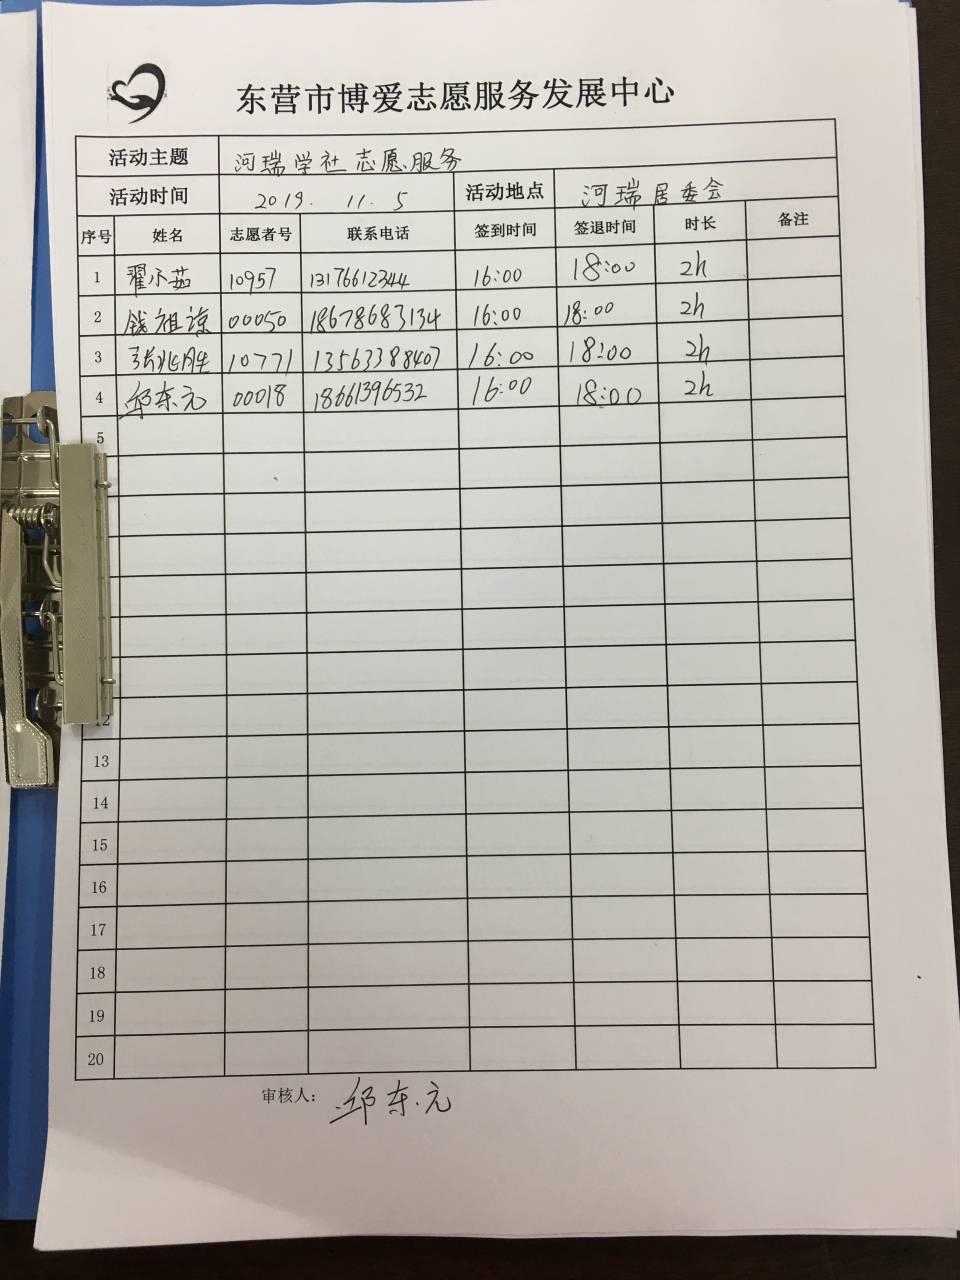 东营市博爱志愿服务发展中心
活动主题 河瑞学社志愿服务
活动时间 2019. 11. 5 活动地点 河瑞居委会
序号 姓名 志愿者号 联系电话 签到时间 签退时间 时长 备注
1 翟小茹 10957 13176612344 16:00 18:00 2h
2 钱祖谅 00050 18678683134 16:00 18:00 2h
3 张兆胜 10771 13563388407 16:00 18:00 2h
4 邱东元 00018 18661396532 16:00 18:00 2h
5
12
13
14
15
16
17
18
19
20
审核人: 邱东元